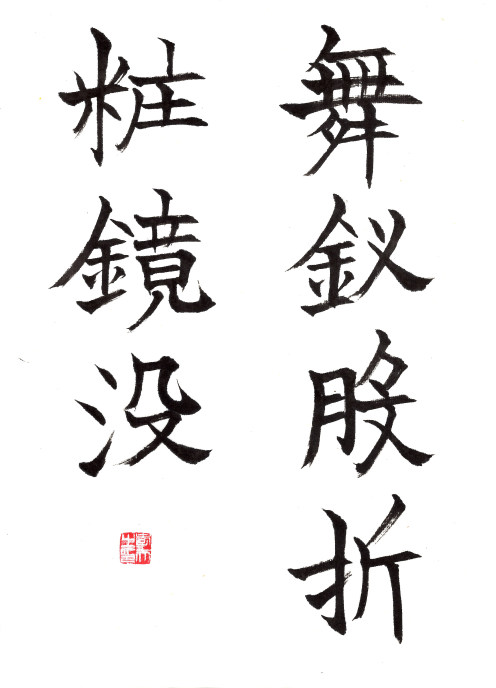 舞釵股折
粧鏡没